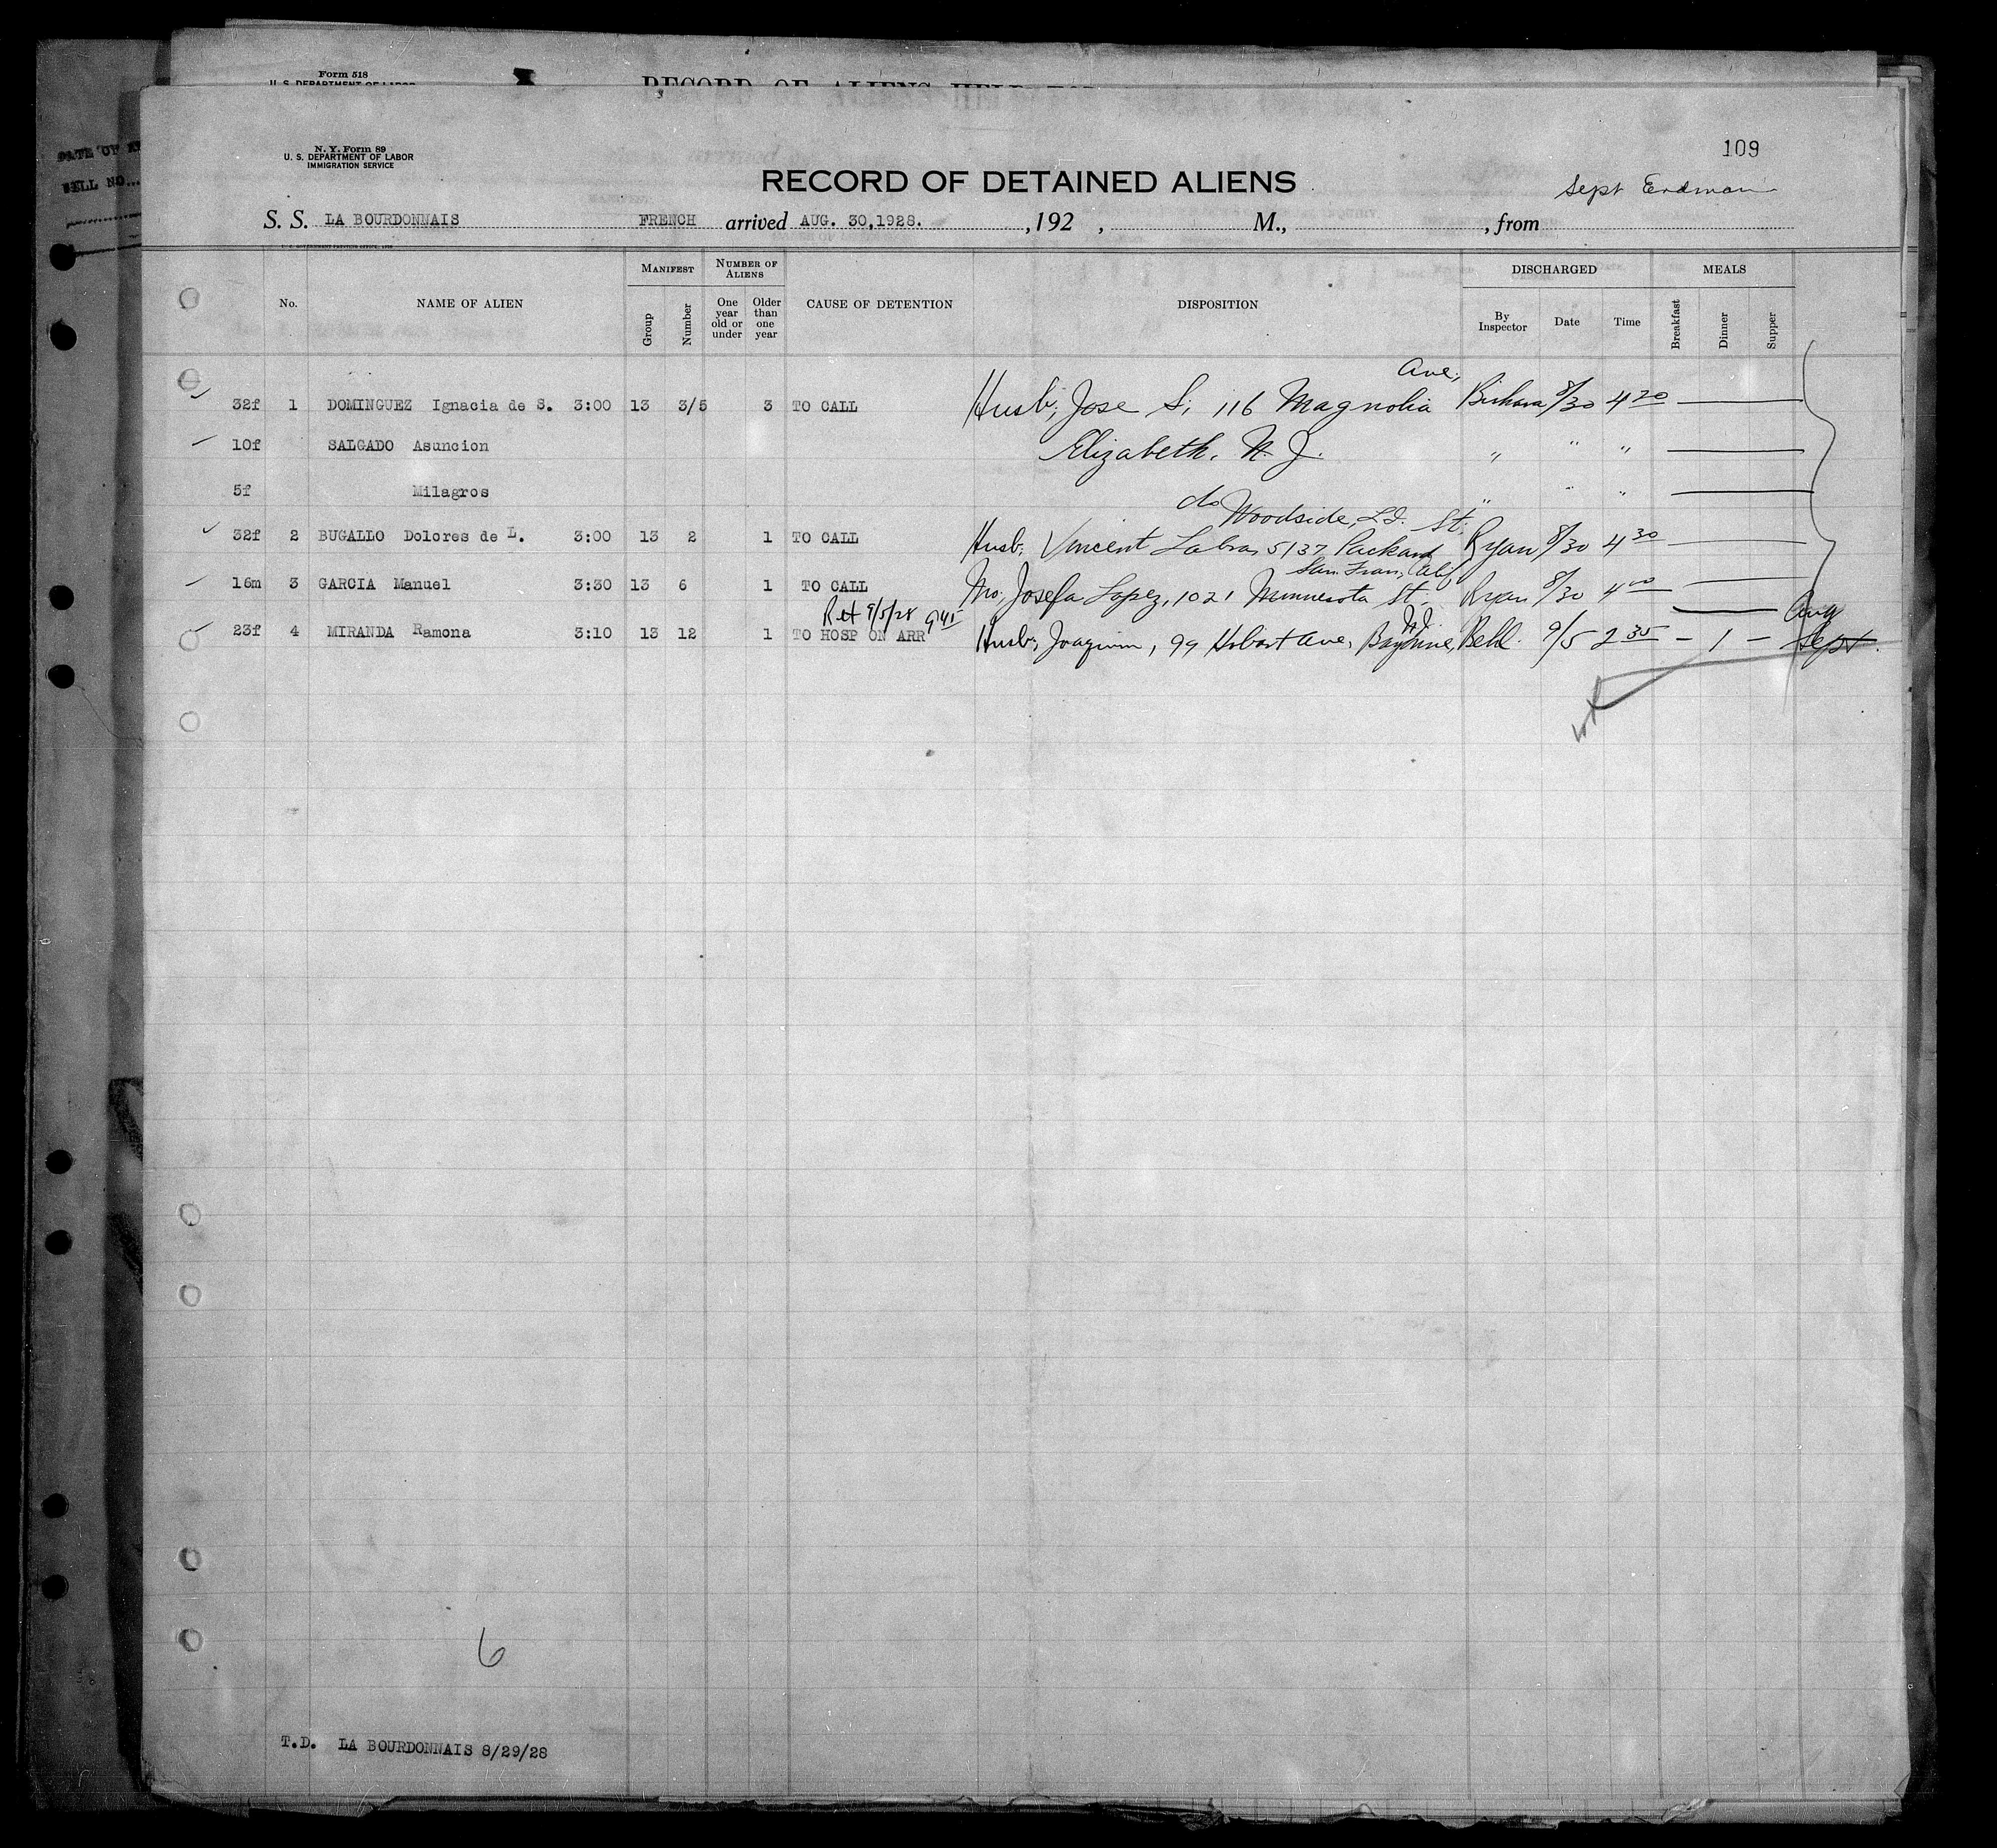 Form 518
U. S. DEPARTMENT OF LABOR
RECORD OF ALIENS HELD
DATE OF
109
N. Y. Form 89
U. S. DEPARTMENT OF LABOR
IMMIGRATION SERVICE
RECORD OF DETAINED ALIENS
Sept Erdman
S. S. LA BOURDONNAIS FRENCH arrived AUG. 30,1928. , 192 , M., , from
No. NAME OF ALIEN MANIFEST Group Number NUMBER OF ALIENS One year old or under Older than one year CAUSE OF DETENTION DISPOSITION DISCHARGED By Inspector Date Time MEALS Breakfast Dinner Supper
Ave,
32f 1 DOMINGUEZ Ignacia de S. 3:00 13 3/5 3 TO CALL Husb, Jose S, 116 Magnolia 8/30 4 20
10f SALGADO Asuncion Elizabeth, N. J. " " "
5f Milagros do " " "
Woodside, L.I. St.
32f 2 BUGALLO Dolores de L. 3:00 13 2 1 TO CALL Husb, Vincent Labra 5137 Packard Ryan 8/30 4 30
San Fran, Calif
16m 3 GARCIA Manuel 3:30 13 6 1 TO CALL Mo, Josefa Lopez, 1021 Minnesota St. Ryan 8/30 4 00
Ret 9/5/28 9 45 N.J. Aug
23f 4 MIRANDA Ramona 3:10 13 12 1 TO HOSP ON ARR Husb, Joaquim, 99 Hobart Ave, Bayonne, 9/5 2 35 – 1 – Sept.
6
T.D. LA BOURDONNAIS 8/29/28